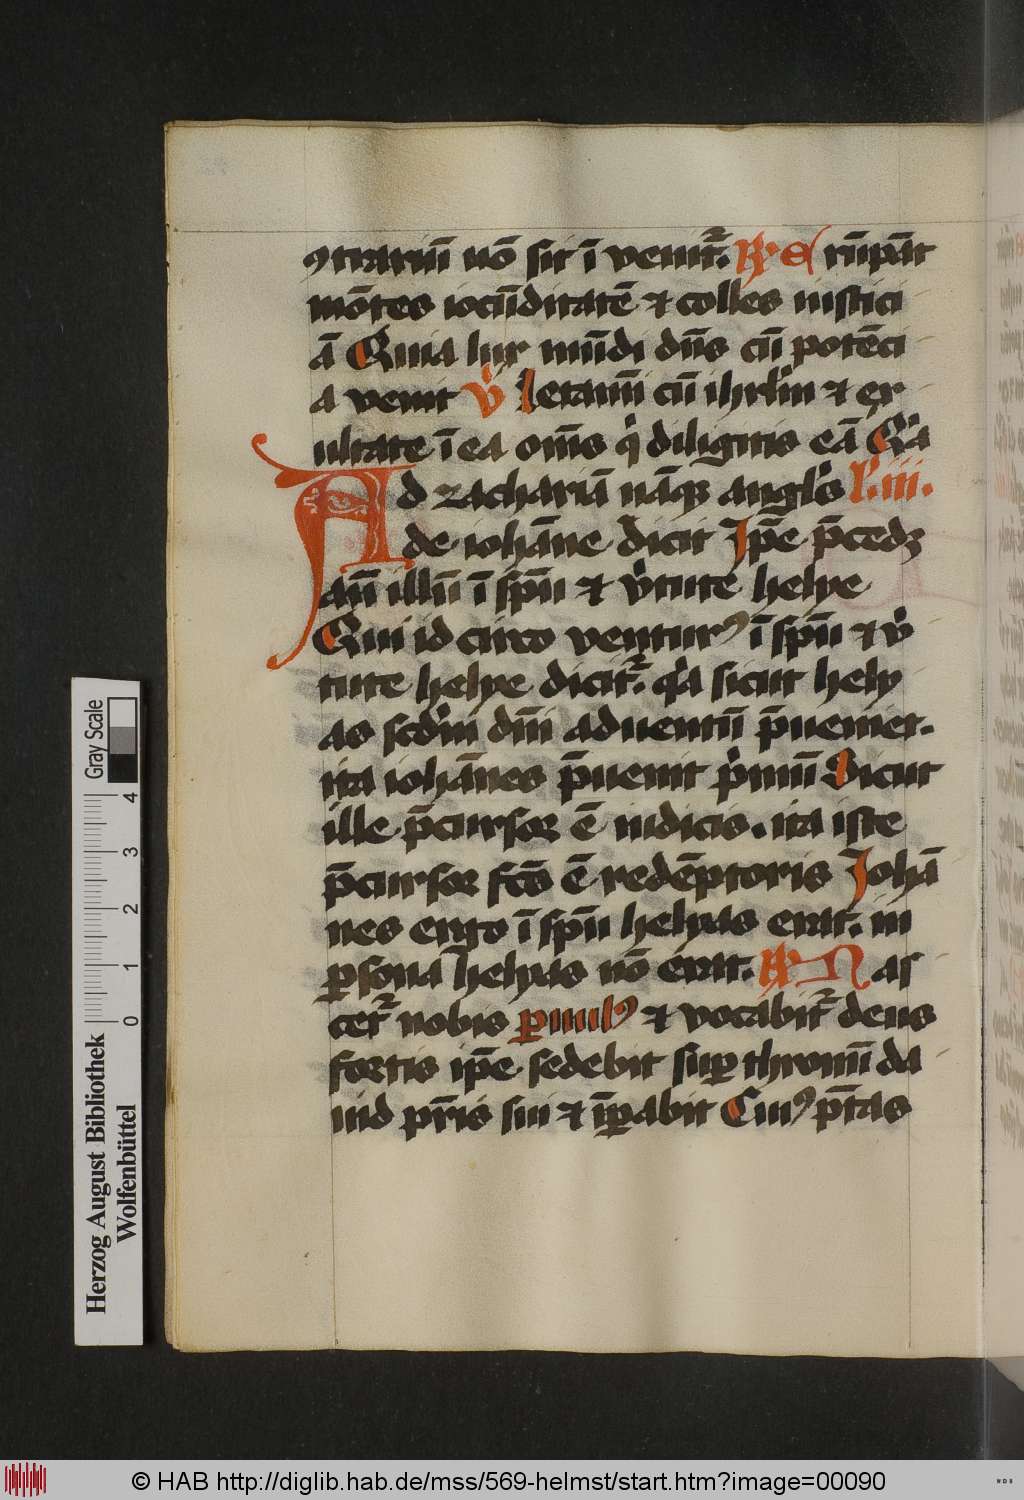 ꝯtrariū nō sit ī venitᷣ. R͛ E rūpāt
mōtes iocūditatē ⁊ colles iustici
ā Quia lux mūdi dn̄s cū potēci
a venit V̉ Letamī cū ihrl̓m ⁊ ex
ultate ī ea om̄s q̇ diligitis eā Q̇a
Ad zachariā nāqꝫ angl̓s l̓. iii.
de iohāne dicit Ip̄e p̄cedꝫ
an̄ illū ī sp̄u ⁊ v̓tute helye
Qui id circo venturꝰ ī sp̄u ⁊ v̓
tute helye dicitᷣ. q̇a sicut hely
as scd̓m dn̄i aduentū p̄ueniet.
ita iohānes p̄uenit p̓mū Sicut
ille p̄cursor ē iudicis. ita iste
p̄cursor fc̄s ē redēptoris Johā
nes ergo ī sp̄u helyas erat. in
ꝑsona helyas nō erat. R͛ N as
cetᷣ nobis ꝑuulꝰ ⁊ vocabitᷣ deus
fortis ip̄e sedebit suꝑ thronū da
uid pr̄is sui ⁊ īꝑabit Cuiꝰ pt̄as
Herzog August Bibliothek
Wolfenbüttel
Gray Scale
0 1 2 3 4
© HAB http://diglib.hab.de/mss/569-helmst/start.htm?image=00090